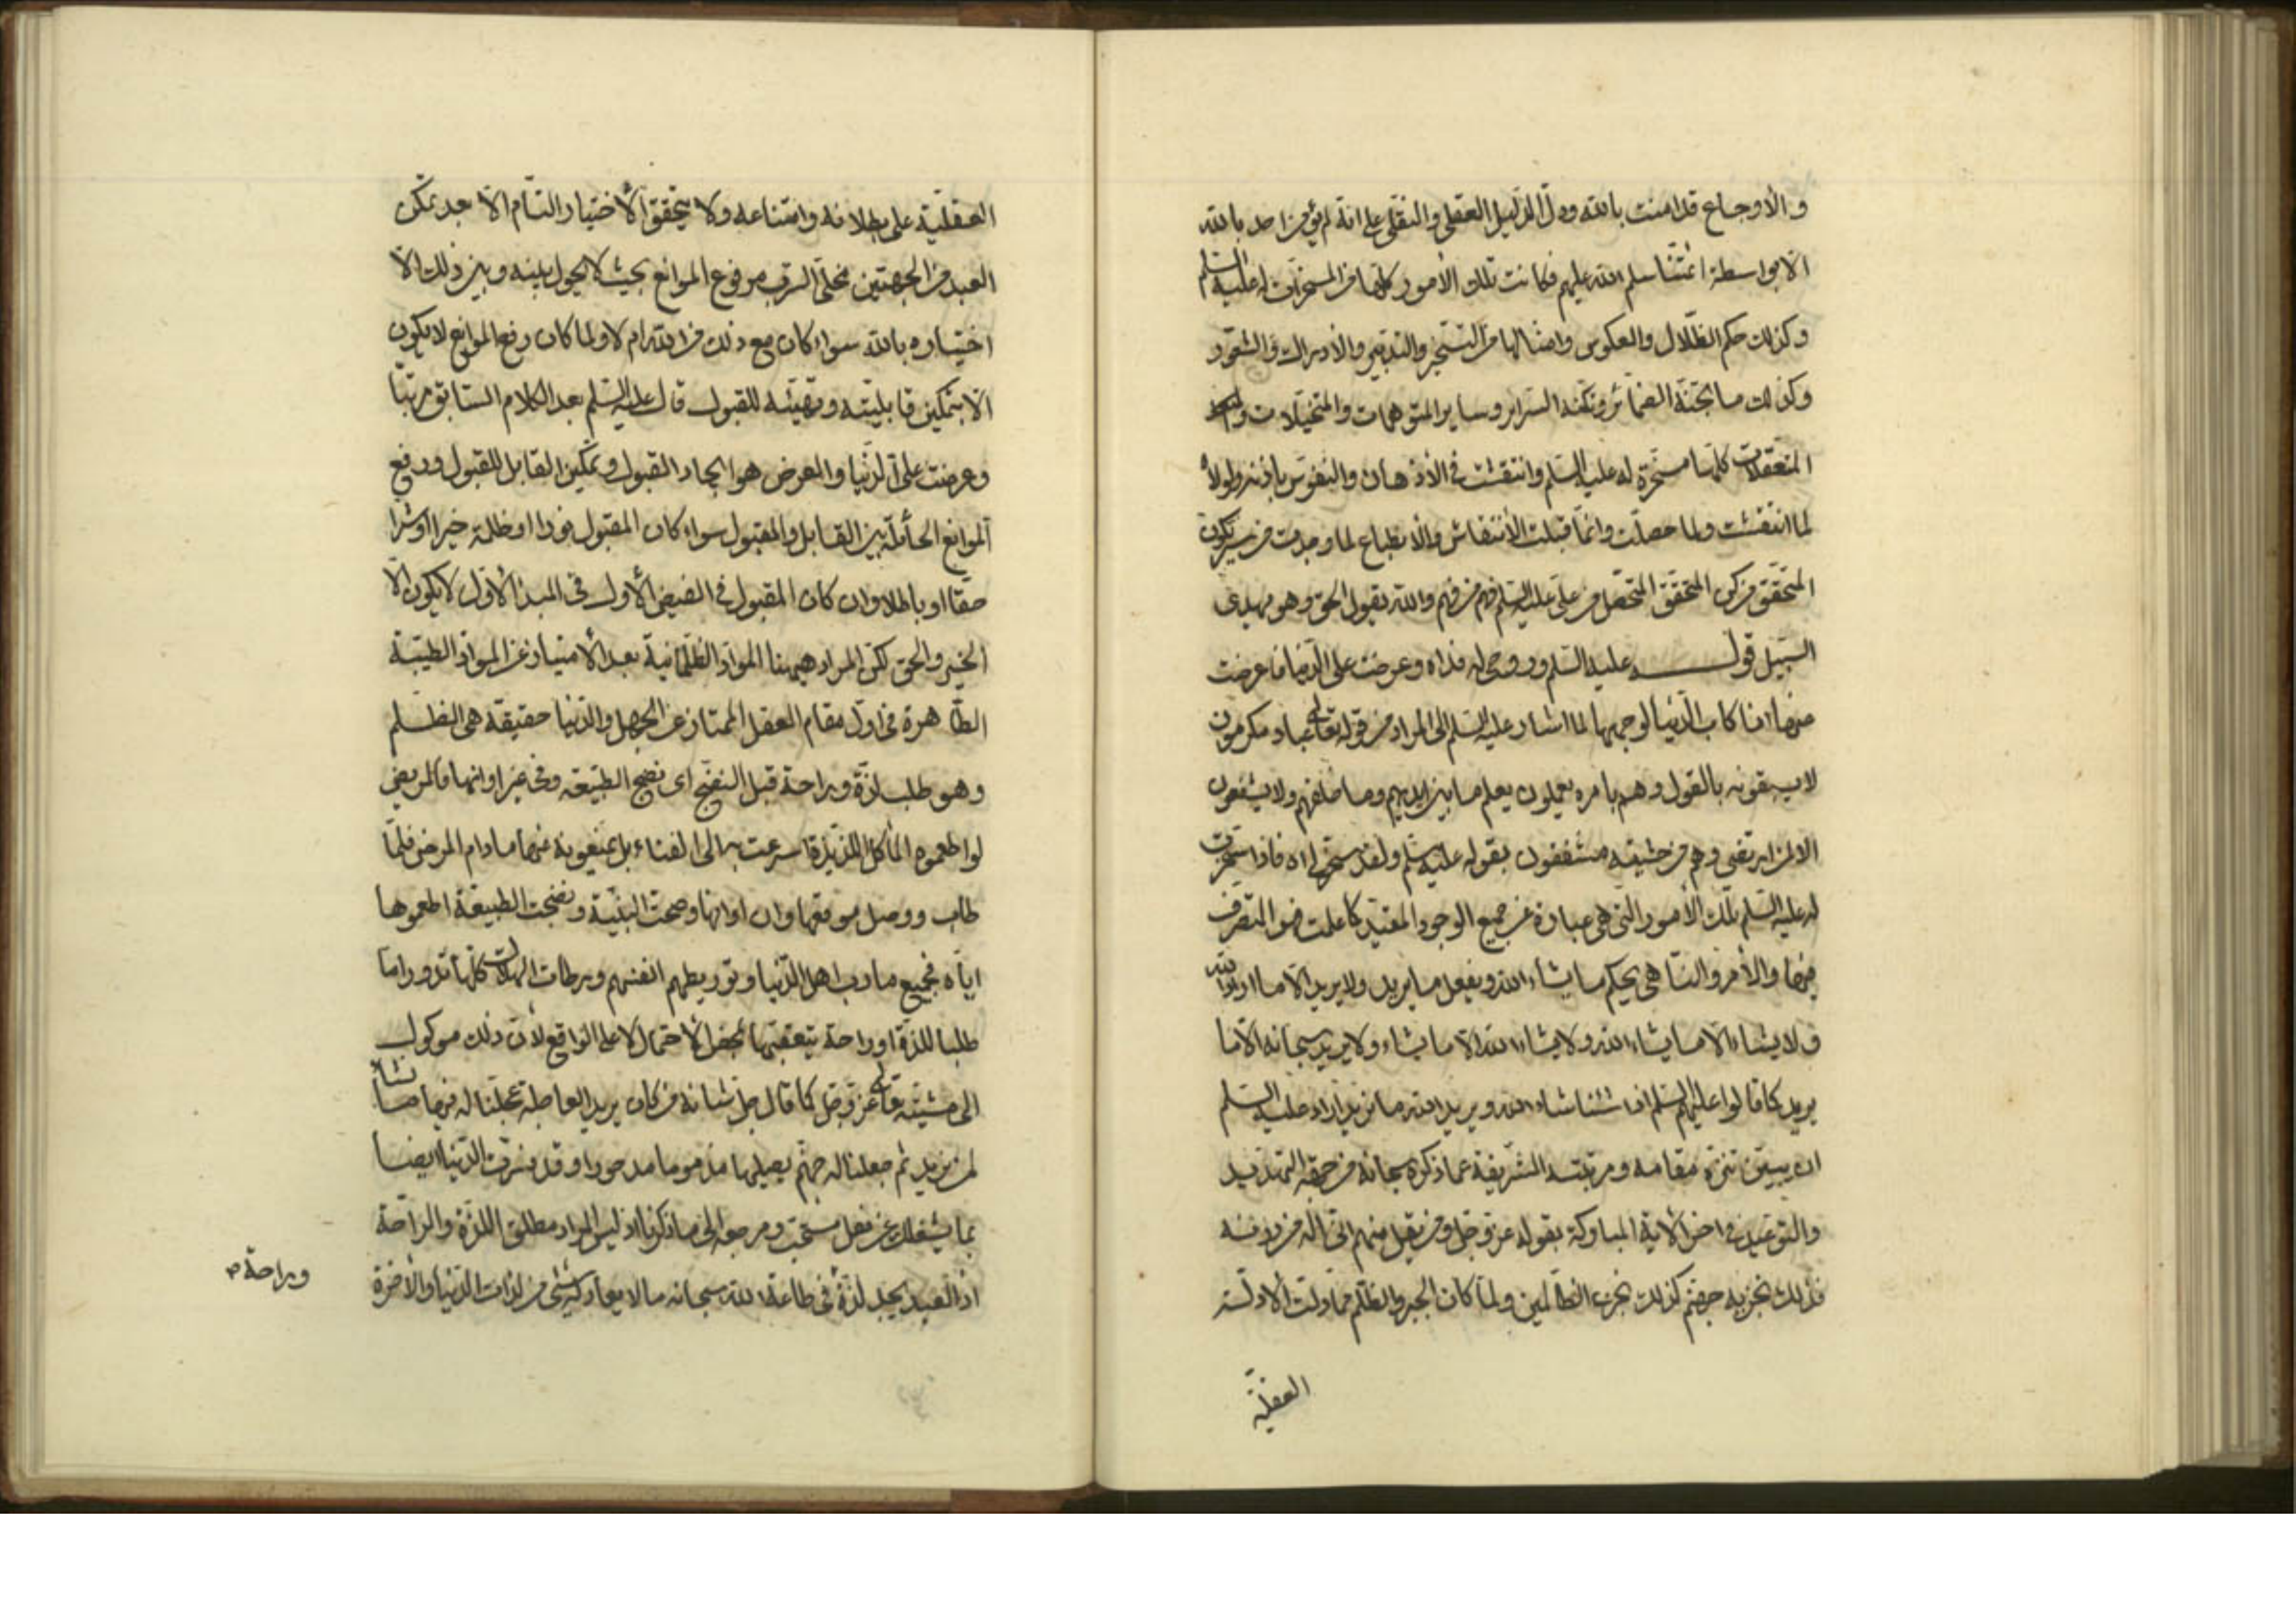 والأوجاع قد امنت بالله ودلّ الدّليل العقلي والنقلي على انه لم يؤمن احد بالله
الا بواسطة ائمّتنا سلم الله عليهم فكانت تلك الأمور كلّها من المسخرات له عليه السّلم
وكذلك حكم الظّلال والعكوس وامثالها من التسخير والتدبير والأدراك والشعور
وكذلك ما تجنّه الضمائر وتكنّه السراير وساير المتوهمات والمتخيّلات و
المتعقّلات كلّها مسخّرة له عليه السّلم وانتقشت في الأذهان والنفوس باذنه ولولاه
لما انتقشت ولما حصلت وانّما قبلت الأنتقاش والأنطباع لما وجدت من سرّ تكون
المتحقّق من كن المتحقّق المتحصّل من علي عليه السّلم فهم من فهم والله يقول الحق وهو يهدي
السّبيل قوله عليه السّلم وروحي له فداه وعرضت على الدّنيا فاعرضت
عنها انا كابّ الدّنيا لوجهها لما اشار عليه السّلم الى المراد من قوله تعالى عباد مكرمون
لا يسبقونه بالقول وهم بامره يعملون يعلم ما بين ايديهم وما خلفهم ولا يشفعون
الا لمن ارتضى وهم من خشيته مشفقون بقوله عليه السّلم ولقد سخّر لي اه فاذا تسخّرت
له عليه السّلم تلك الأمور التي هي عبارة عن جميع الوجود المقيّد كما علمت فهو المتصرّف
فيها والأمر والنّاهي يحكم ما يشاء الله ويفعل ما يريد ولا يريد الا ما اراد الله
ولا يشاء الا ما يشاء الله ولا يشاء الله الا ما يشاء ولا يريد سبحانه الا ما
يريد كما قالوا عليهم السّلم اذا شئنا شاء الله ويريد الله ما نريد اراد عليه السّلم
ان يبيّن تنزّه مقامه ومرتبته الشريفة عما ذكره سبحانه من جهة التهديد
والتوعيد في اخر الأية المباركة بقوله عز وجل ومن يقل منهم انّي اله من دونه
فذلك نجزيه جهنّم كذلك نجزي الظّالمين ولمّا كان الجبر والظّلم مما دلت الأدلّة
العقليّة
العقليّة على بطلانه وامتناعه ولا يتحقق الأختيار التّام الا بعد تمكّن
العبد من الجهتين مخلّى السّرب مرفوع الموانع بحيث لا يحول بينه وبين ذلك الا
اختياره بالله سواء كان مع ذلك من الله ام لا ولما كان رفع الموانع لا يكون
الا بتمكين قابليّته وتهيّئه للقبول قال عليه السّلم بعد الكلام السابق مرتبا
وعرضت على الدّنيا والعرض هو ايجاد القبول وتمكين القابل للقبول ورفع
الموانع الحائلة بين القابل والمقبول سواء كان المقبول نورا او ظلمة خيرا او شرا
حقّا او باطلا وان كان المقبول في الفيض الأول في المبدء الأوّل لا يكون الا
الخير والحق لكنّ المراد هيهنا الموادّ الظّلمانية بعد الأمتياز عن الموادّ الطيّبة
الطّاهرة في اول مقام العقل الممتاز عن الجهل والدّنيا حقيقة هي الظلم
وهو طلب لذّة وراحة قبل النضج اى نضج الطّبيعة وفي غير اوانها فالمريض
لو اطعموه المأكل اللّذيذة اسرعت به الى الفناء بل يمنعونه عنها مادام المرض فلمّا
طاب ووصل موقعها وان اوانها وصحت البنية ونضجت الطبيعة اطعموها
ايّاه فجميع مادب اهل الدّنيا وتوريطهم انفسهم ورطات الهلاك كلّها تدور امّا
طلبا للذّة او راحة يتعقبها بمحض الأحتمال لا على الواقع لأن ذلك موكول
الى مشيّته تعالى عز وجل كما قال جل شانه من كان يريد العاجلة عجلنا له فيها ما نشاء
لمن نريد ثم جعلنا له جهنّم يصليها مذموما مدحورا وقد فسّرت الدّنيا ايضا
بما يشغلك عن فعل مستحبّ ومرجعه الى ما ذكرنا اذ ليس المراد مطلق اللذّة والراحة
اذ العبد يجد لذّة في طاعة الله سبحانه ما لا يعادله شئ من لذات الدّنيا والأخرة
وراحة م